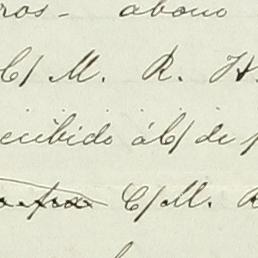 ros- abono
C/ M. R. H.
ecibido á C/ de
C/M. R